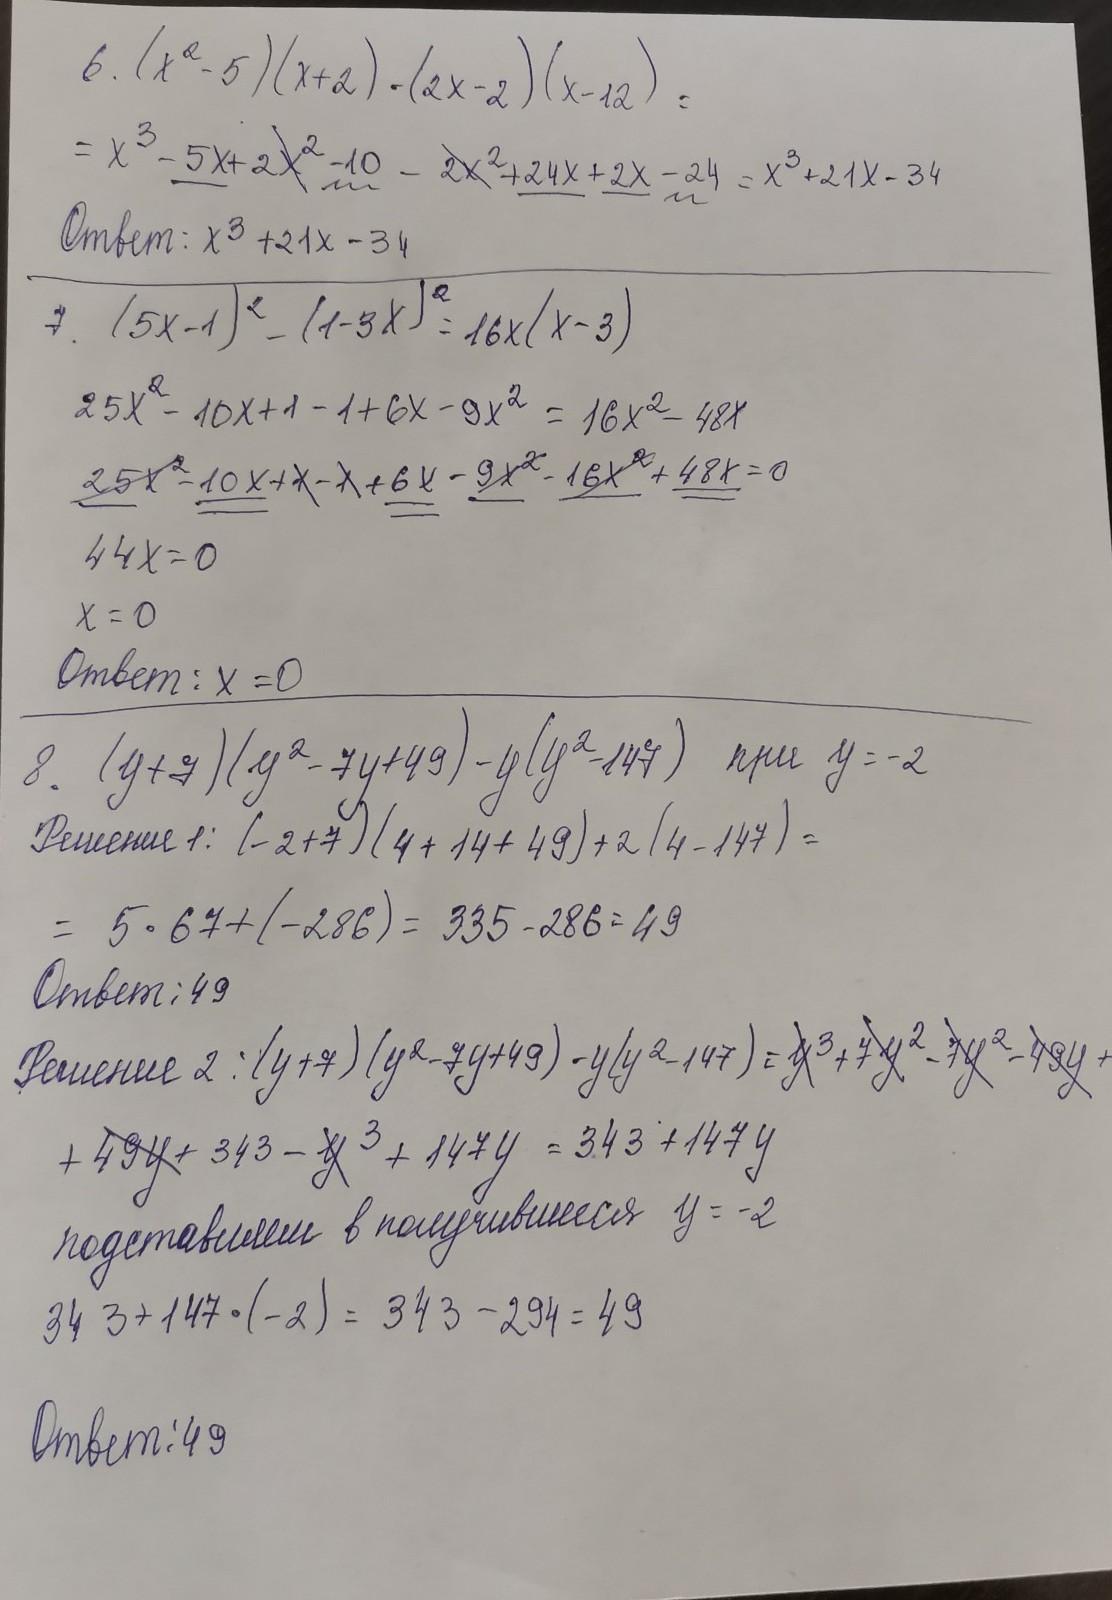 6. (x²-5)(x+2)-(2x-2)(x-12) =
= x³-5x+2x²-10 - 2x²+24x+2x-24 = x³+21x-34
Ответ: x³+21x-34
7. (5x-1)² - (1-3x)² = 16x(x-3)
25x²-10x+1-1+6x-9x² = 16x²-48x
25x²-10x+1-1+6x-9x²-16x²+48x=0
44x=0
x=0
Ответ: x=0
8. (y+7)(y²-7y+49)-y(y²-147) при y=-2
Решение 1: (-2+7)(4+14+49)+2(4-147)=
= 5·67+(-286)= 335-286=49
Ответ: 49
Решение 2: (y+7)(y²-7y+49)-y(y²-147)=y³+7y²-7y²-49y+
+49y+343-y³+147y = 343+147y
подставляем в получившиеся y=-2
343+147·(-2)= 343-294=49
Ответ: 49